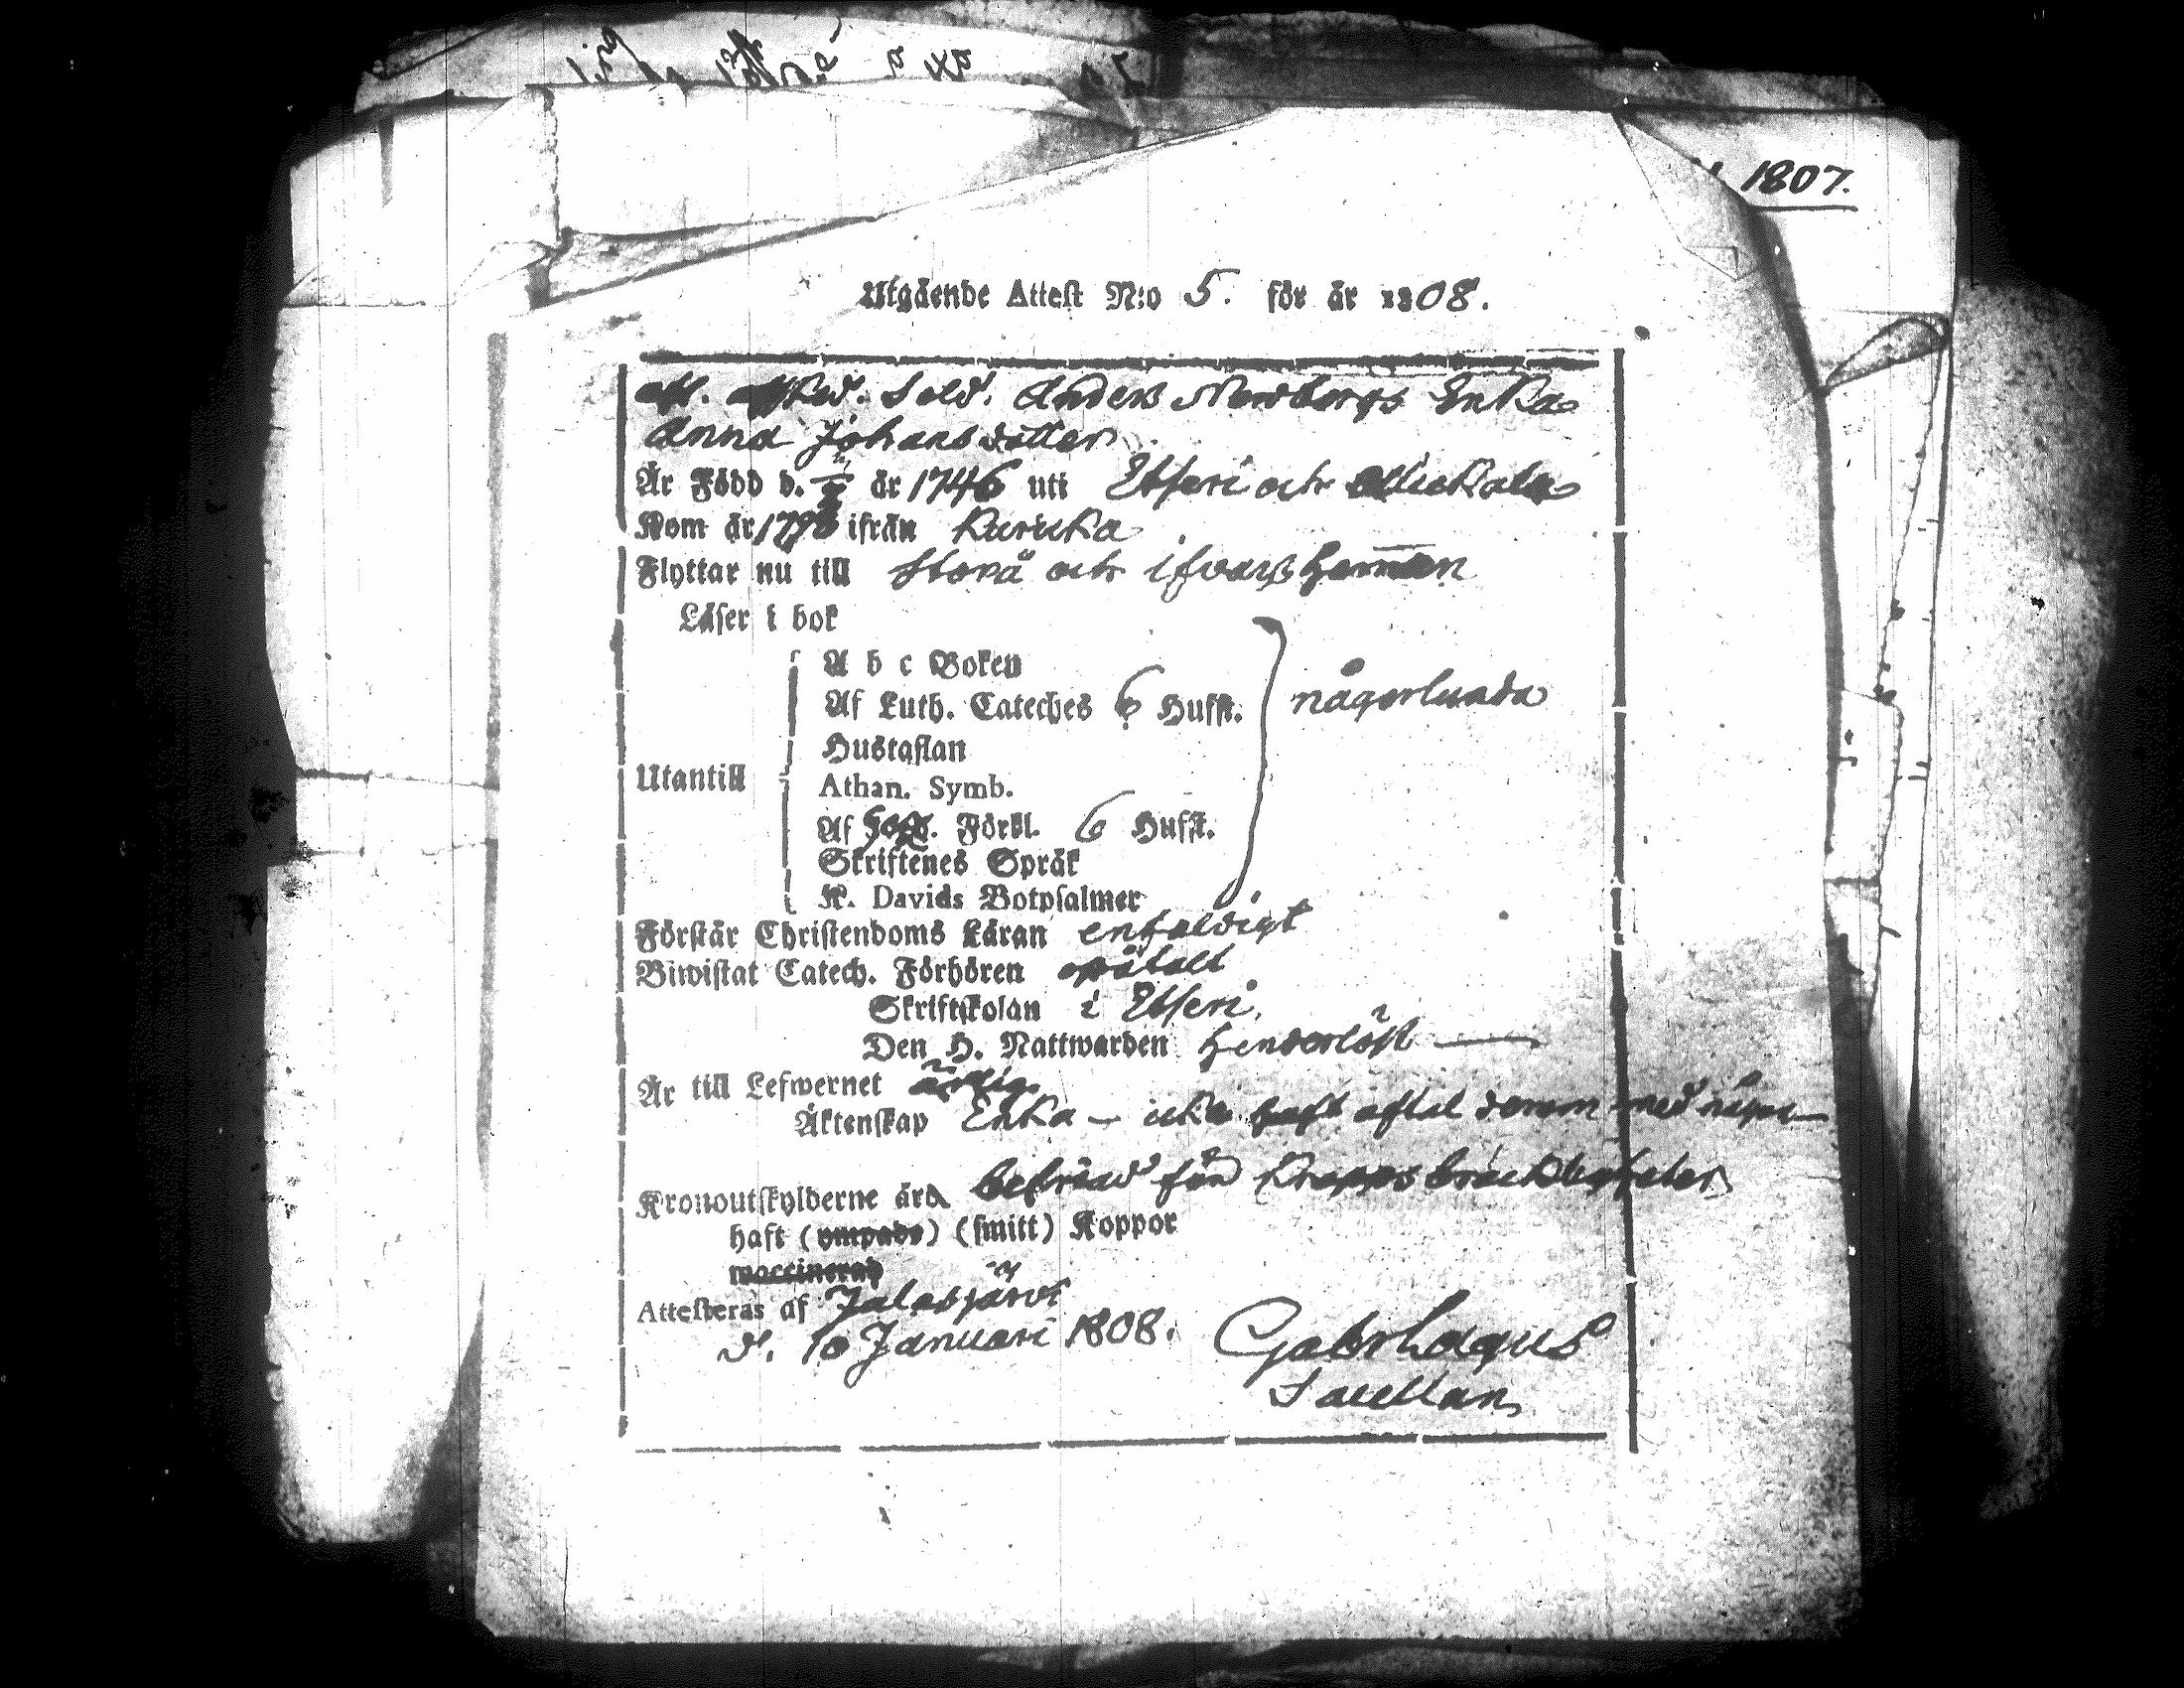 1807.
Utgående Attest N:o 5. för år 1808.
afl. Afsked. Sold. Anders Nordbergs Enka
Anna Johansdotter
Är Född d. år 1746 uti Etseri och
Kom år 1798 ifrån Kuricka
Flyttar nu till Storå och Ifvars hemman
Läser i bok
A b c Boken
Af Luth. Cateches 6 Hufst. någorlunda
Hustaflan
Utantill
Athan. Symb.
Af Förkl. 6 Hufst.
Skriftenes Språk
K. Davids Botpsalmer
Förstår Christendoms Läran enfaldigt
Biwistat Catech. Förhören
Skriftskolan i Etseri.
Den H. Nattwarden hinderlöst
Är till Lefwernet ärlig
Äktenskap Enka – icke haft aftal derom med någon
Kronoutskylderne är befriad för
haft (ympade) (smitt) Koppor
waccinerad
Attesteras af Jalasjärvi
d. 10 Januari 1808. Gabr Lagus
Sacellan